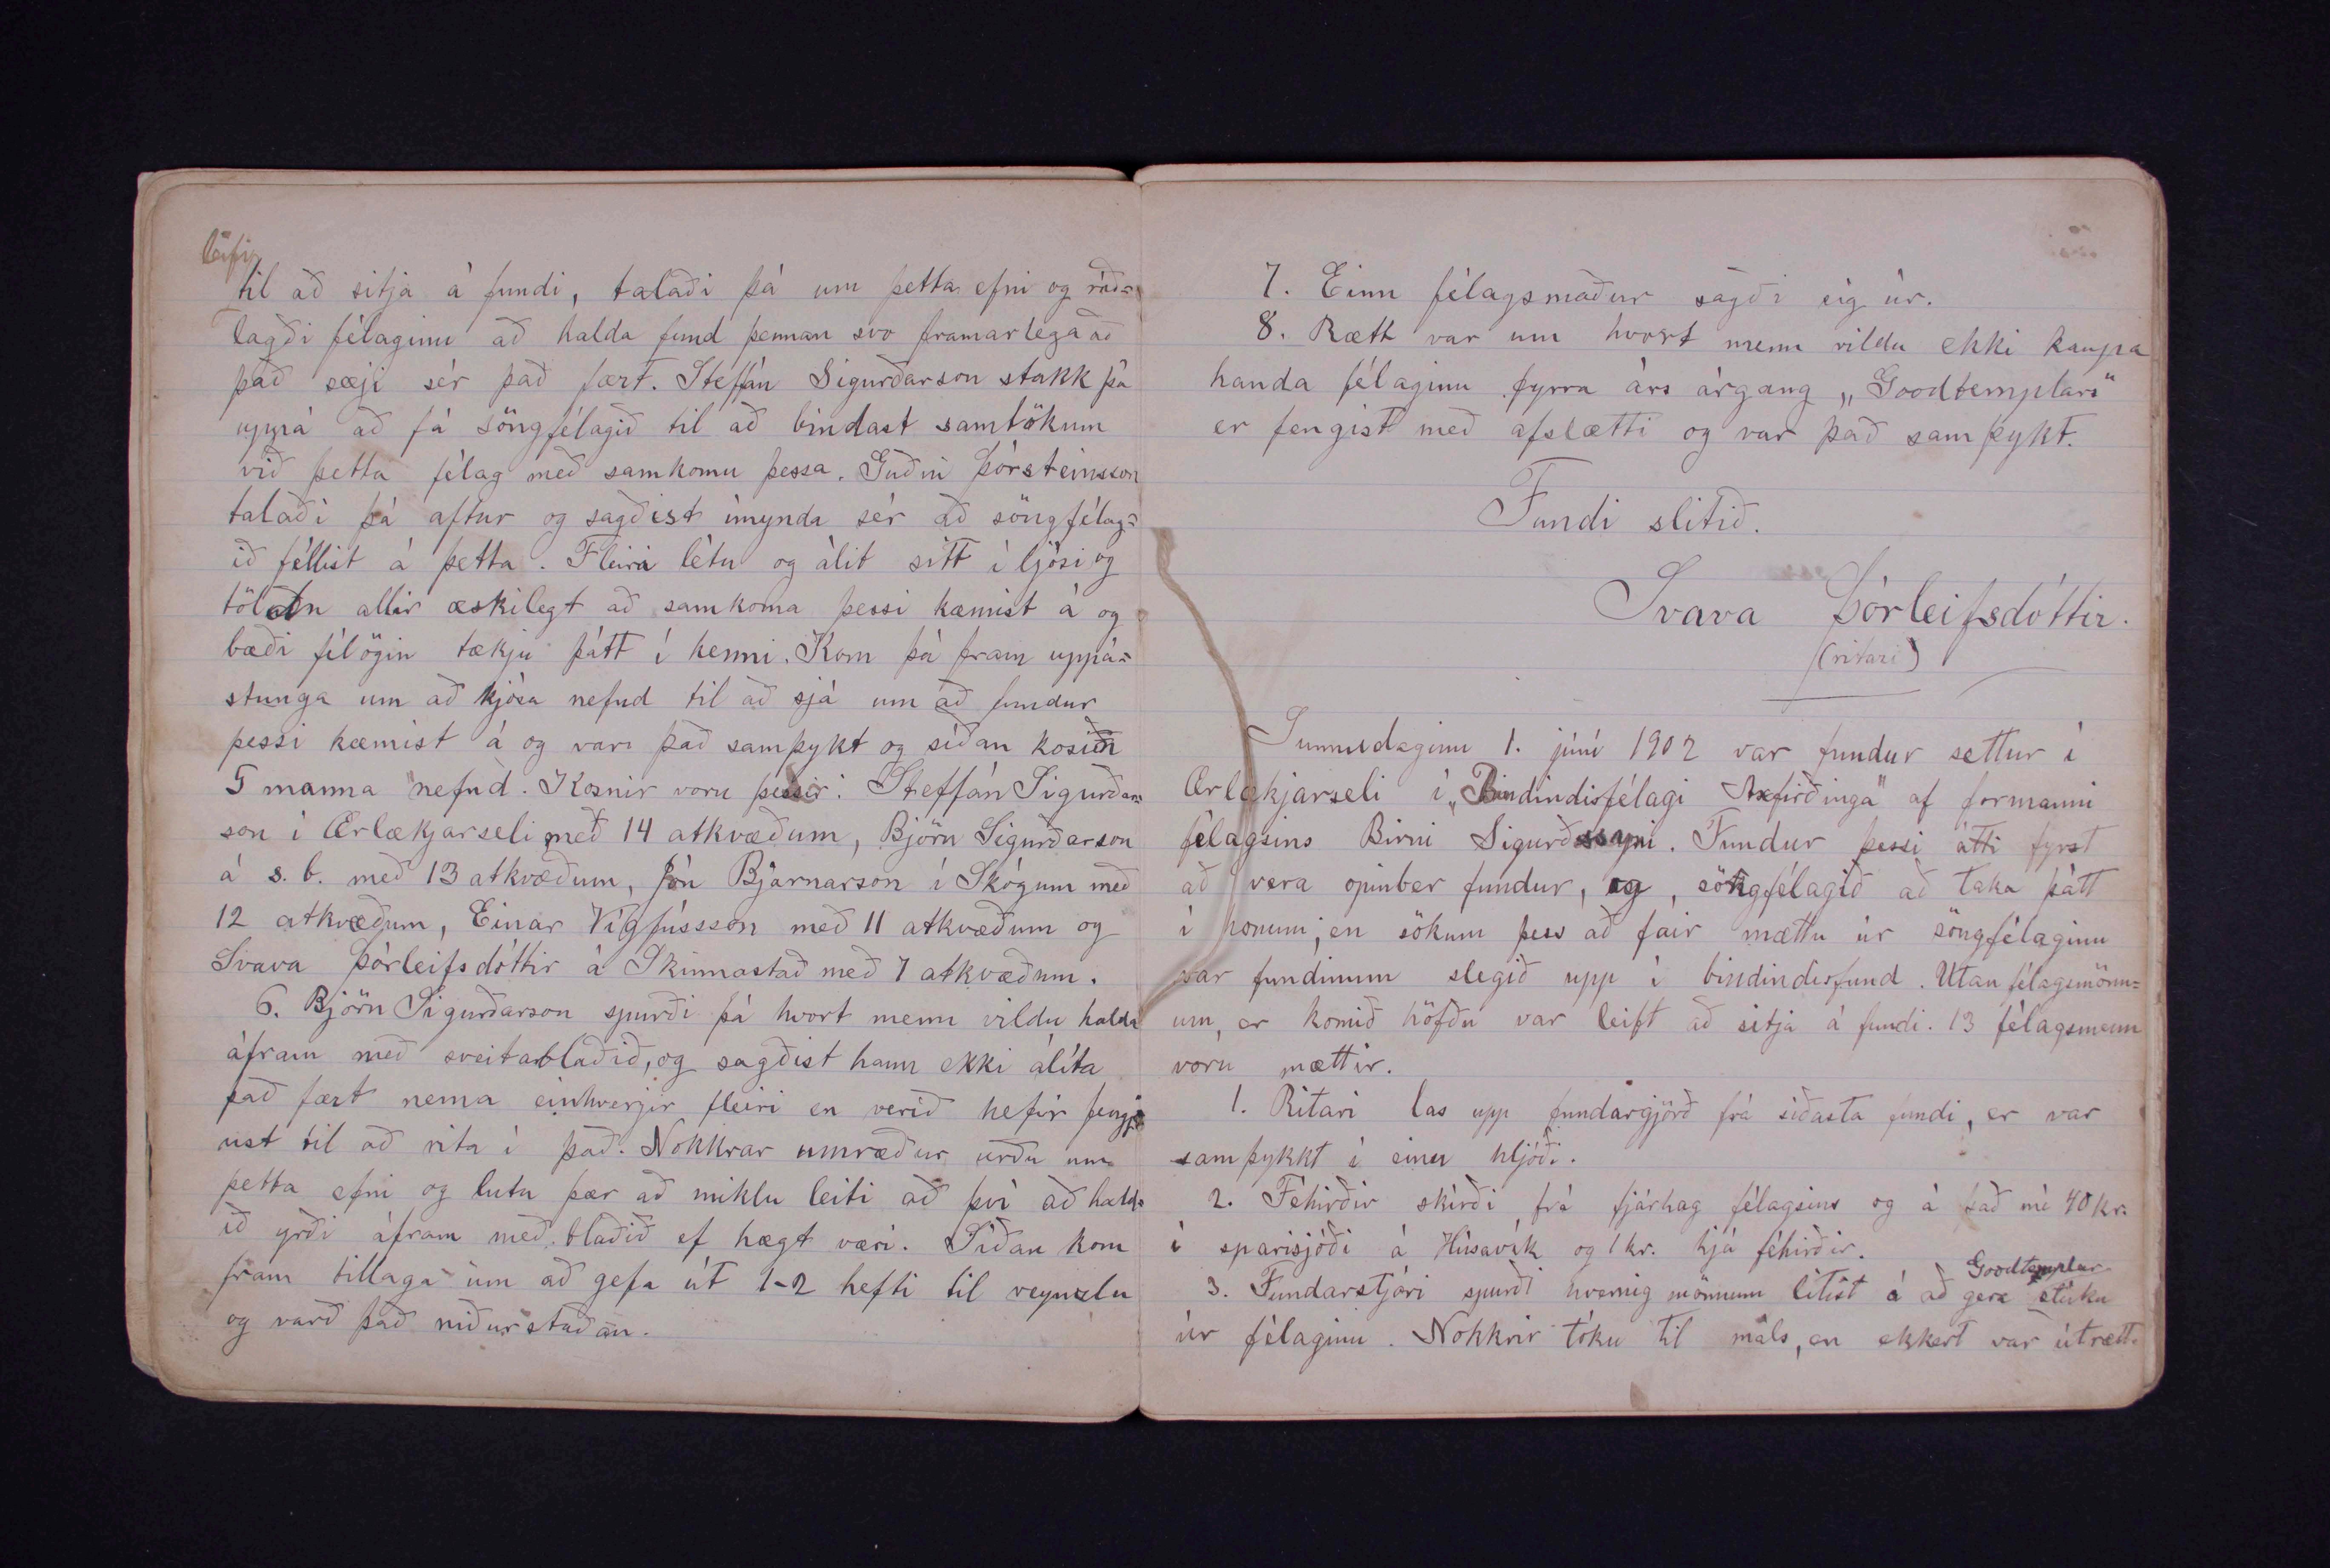 leifi
til að sitja á fundi, talaði þá um þetta efni og ráð=
lagði félaginu að halda fund þennan svo framarlega að
það sæji sér það fært. Steffán Sigurðarson stakk þá
uppá að fá söngfélagið til að bindast samtökum
við þetta félag með samkomu þessa. Guðni Þórsteinsson
talaði þá aftur og sagðist ímynda sér að söngfélag=
ið féllist á þetta. Fleiri létu og álit sitt í ljósi og
töldu allir æskilegt að samkoma þessi kæmist á og
bæði félögin tækju þátt í henni. Kom þá fram uppá=
stunga um að kjósa nefnd til að sjá um að fundur
þessi kæmist á og var það samþykt og síðan kosin
5 manna nefnd. Kosnir voru þessir: Steffán Sigurðar=
son í Ærlækjarseli með 14 atkvæðum, Björn Sigurðarson
á s. b. með 13 atkvæðum, Jón Bjarnarson í Skógum með
12 atkvæðum, Einar Vigfússson með 11 atkvæðum og
Svava Þórleifsdóttir á Skinnastað með 7 atkvæðum.
6. Björn Sigurðarson spurði þá hvort menn vildu halda
áfram með sveitarblaðið, og sagðist hann ekki álíta
það fært nema einhverjir fleiri en verið hefir fengj
ust til að rita í það. Nokkrar umræður urðu um
þetta efni og lutu þær að miklu leiti að því að hald=
ið yrði áfram með blaðið ef hægt væri. Síðan kom
fram tillaga um að gefa út 1-2 hefti til reynslu
og varð það niðurstaðan.
7. Einn félagsmaður sagði sig úr.
8. Rætt var um hvort menn vildu ekki kaupa
handa félaginu fyrra árs árgang „Goodtemplars"
er fengist með afslætti og var það samþykt.
Fundi slitið.
Svava Þórleifsdóttir.
(ritari)
Sunnudaginn 1. júní 1902 var fundur settur í
Ærlækjarseli í „Bindindisfélagi Axfirðinga" af formanni
félagsins Birni Sigurðssyni. Fundur þessi átti fyrst
að vera opinber fundur, og, söngfélagið að taka þátt
í honum; en sökum þess að fáir mættu úr söngfélaginu
var fundinum slegið upp í bindindisfund. Utanfélagsmönn=
um, er komið höfðu var leift að sitja á fundi. 13 félagsmenn
vóru mættir.
1. Ritari las upp fundargjörð frá síðasta fundi, er var
samþykkt í einu hljóði.
2. Féhirðir skírði frá fjárhag félagsins og á það nú 40 kr.
í sparisjóði á Húsavík og 1 kr. hjá féhirðir.
3. Fundarstjóri spurði hvernig mönnum litist á að gera Goodtemplar stúku
úr félaginu. Nokkrir tóku til máls, en ekkert var útrætt.